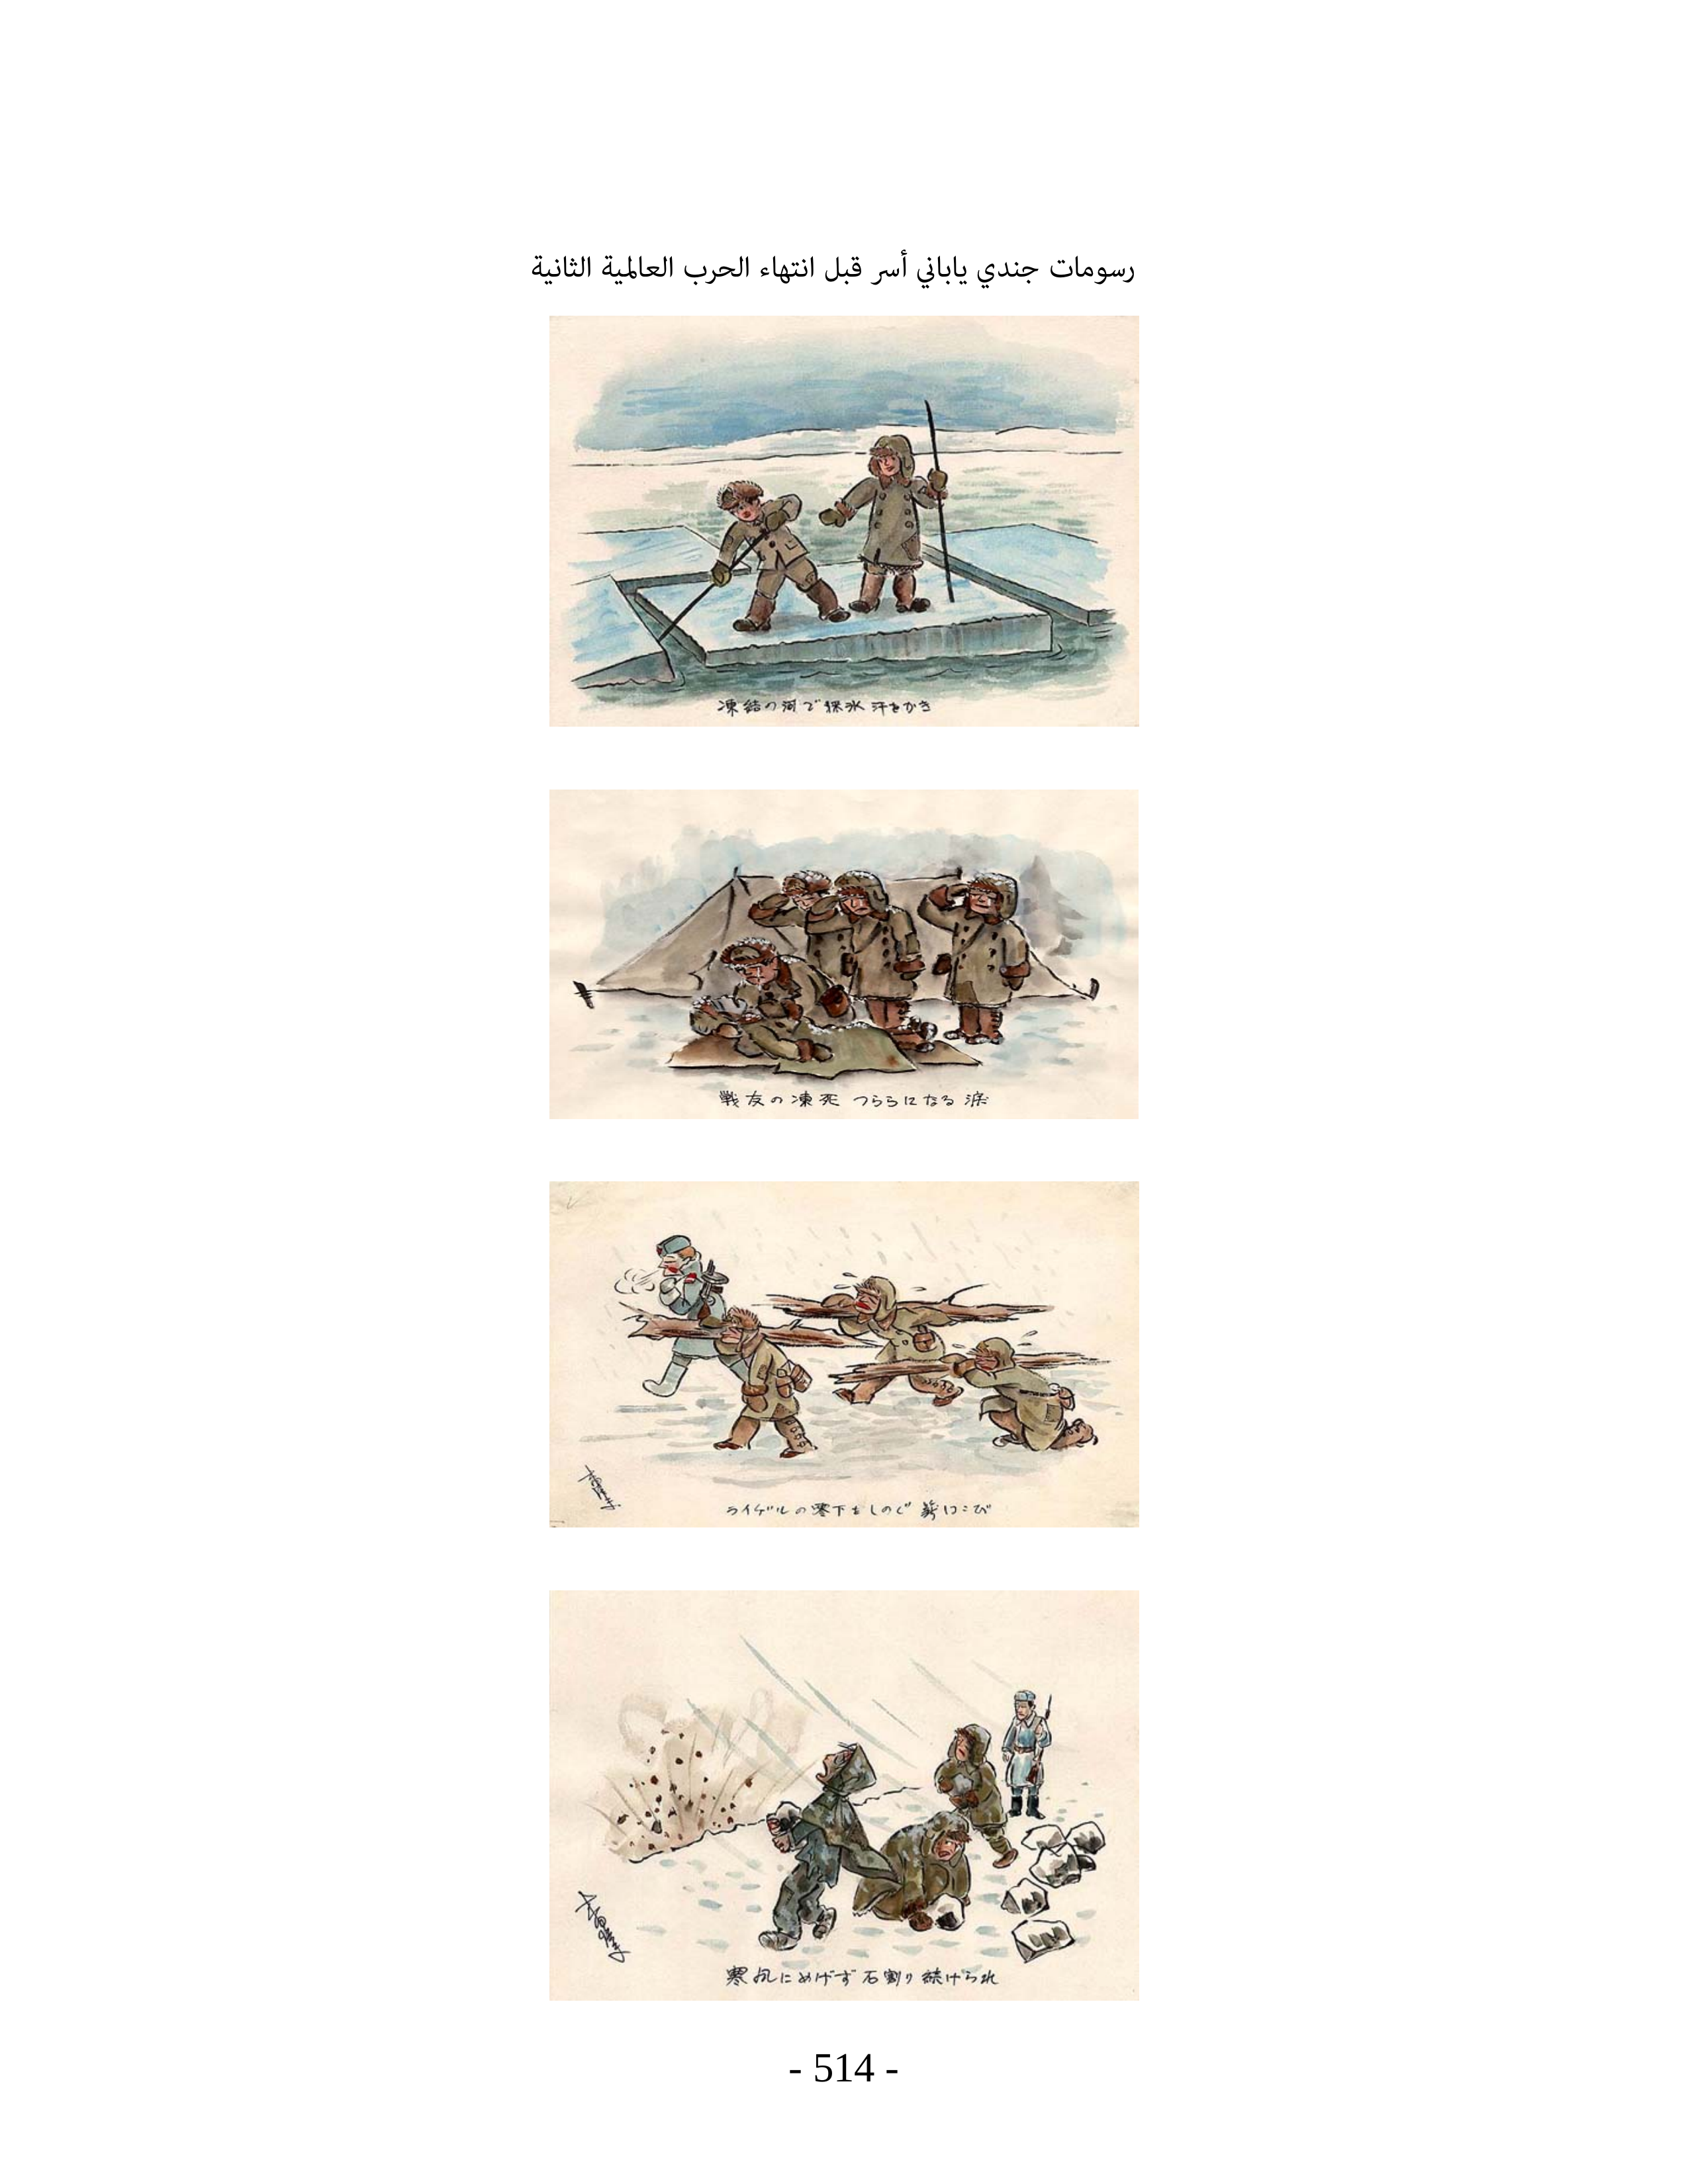 رسومات جندي ياباني أسر قبل انتهاء الحرب العالمية الثانية
凍結の河で採氷 汗をかき
戦友の凍死 つららになる涙
ライゲルの零下をしのぐ薪はこび
寒風にめげず石割り続けられ
- 514 -